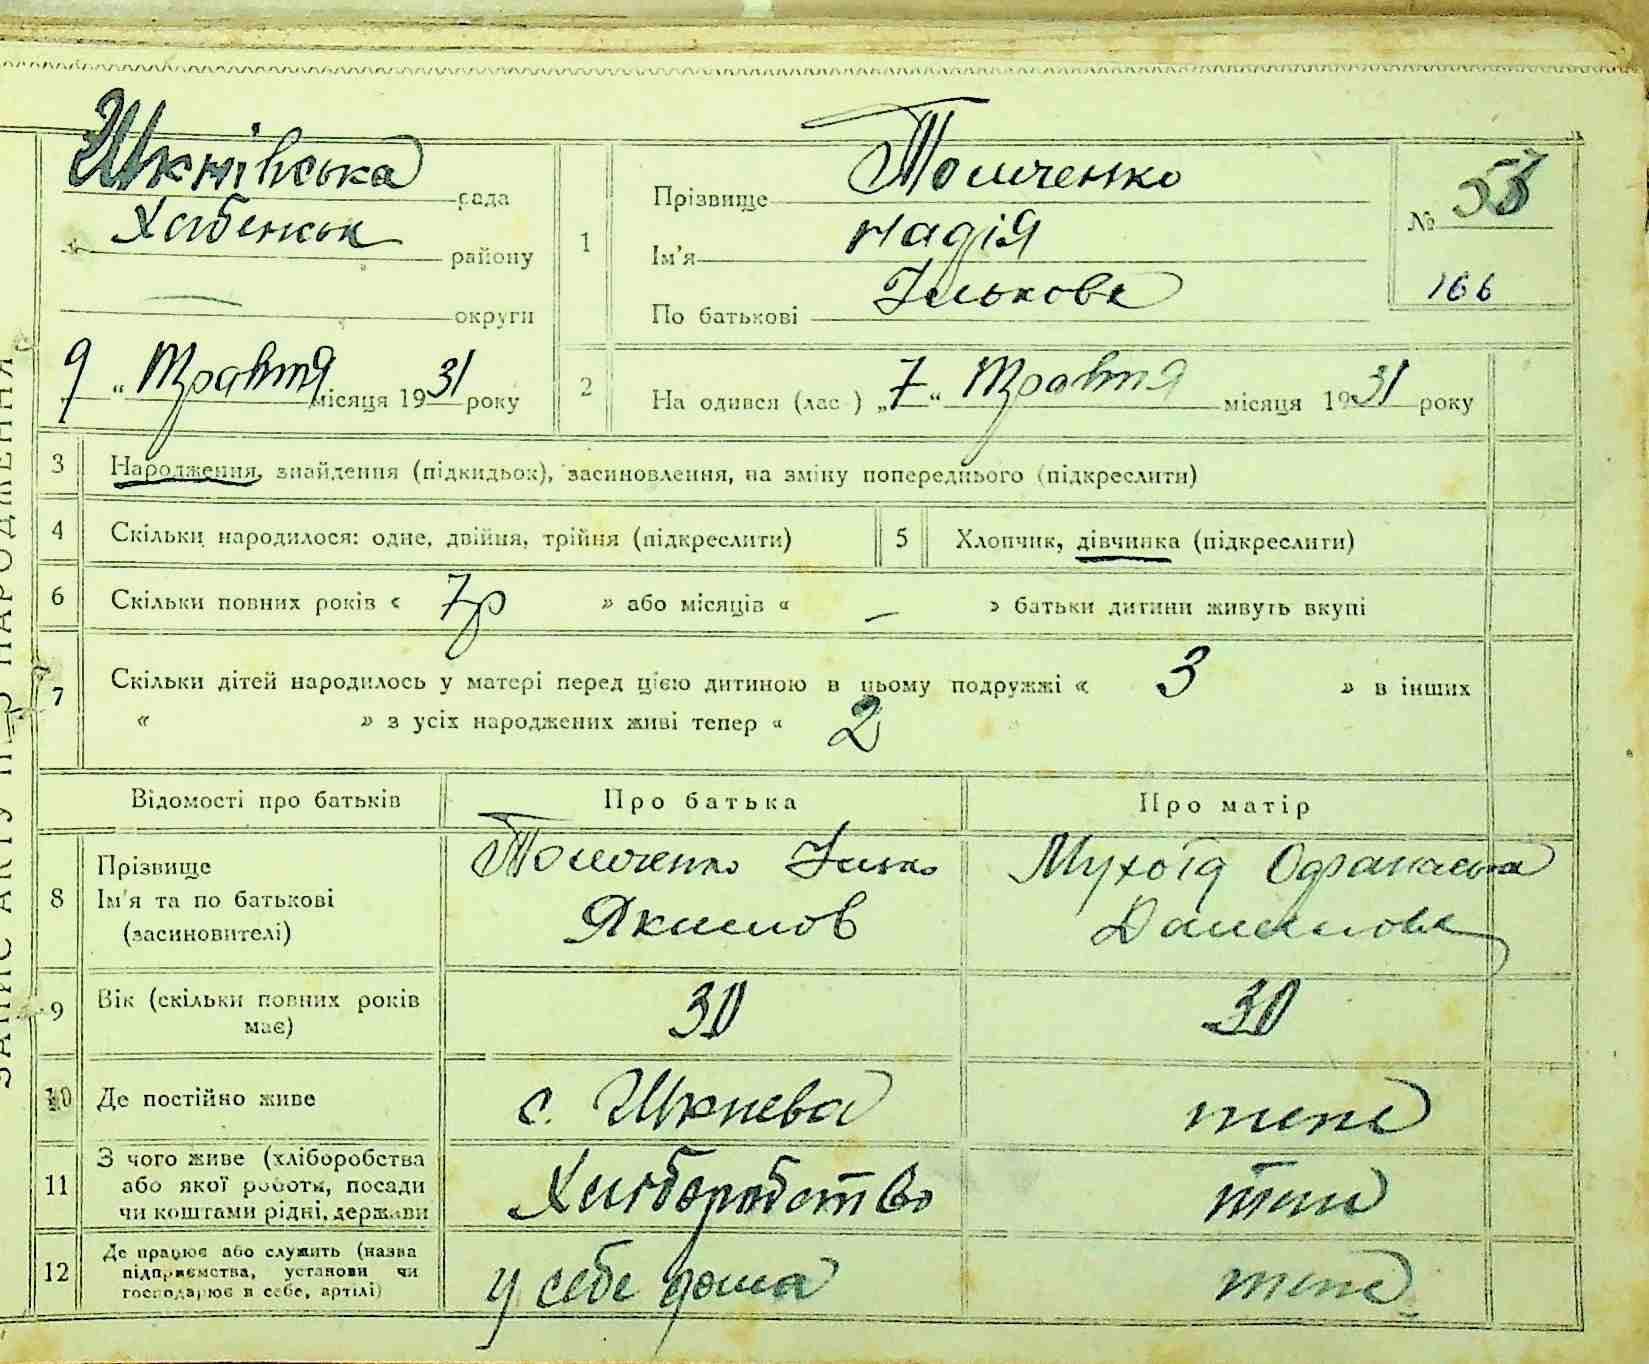 Шкнівська рада
Хабенськ району
округи
9 „ Травтя місяця 1931 року
1
Прізвище Томченко
Ім'я Надія
По батькові Ількова
№ 53
166
2 На одився (лас ) „ 7 “ Травтя місяця 1931 року
3 Народження, знайдення (підкидьок), засиновлення, на зміну попереднього (підкреслити)
4 Скільки народилося: одне, двійня, трійня (підкреслити) 5 Хлопчик, дівчинка (підкреслити)
6 Скільки повних років « 7р » або місяців « – » батьки дитини живуть вкупі
7 Скільки дітей народилось у матері перед цією дитиною в цьому подружжі « 3 » в інших
« » з усіх народжених живі тепер « 2
Відомості про батьків Про батька Про матір
8 Прізвище Ім'я та по батькові (засиновителі)
Томченко Ілько
Якимов
Мухоїд Офанаська
Данилова
9 Вік (скільки повних років має) 30 30
10 Де постійно живе с. Шкнева теж
11 З чого живе (хліборобства або якої роботи, посади чи коштами рідні, держави Хліборобство теж
12 Де працює або служить (назва підприємства, установи чи господарює в себе, артілі) у себе дома теж
ЗАПИС АКТУ ПРО НАРОДЖЕННЯ